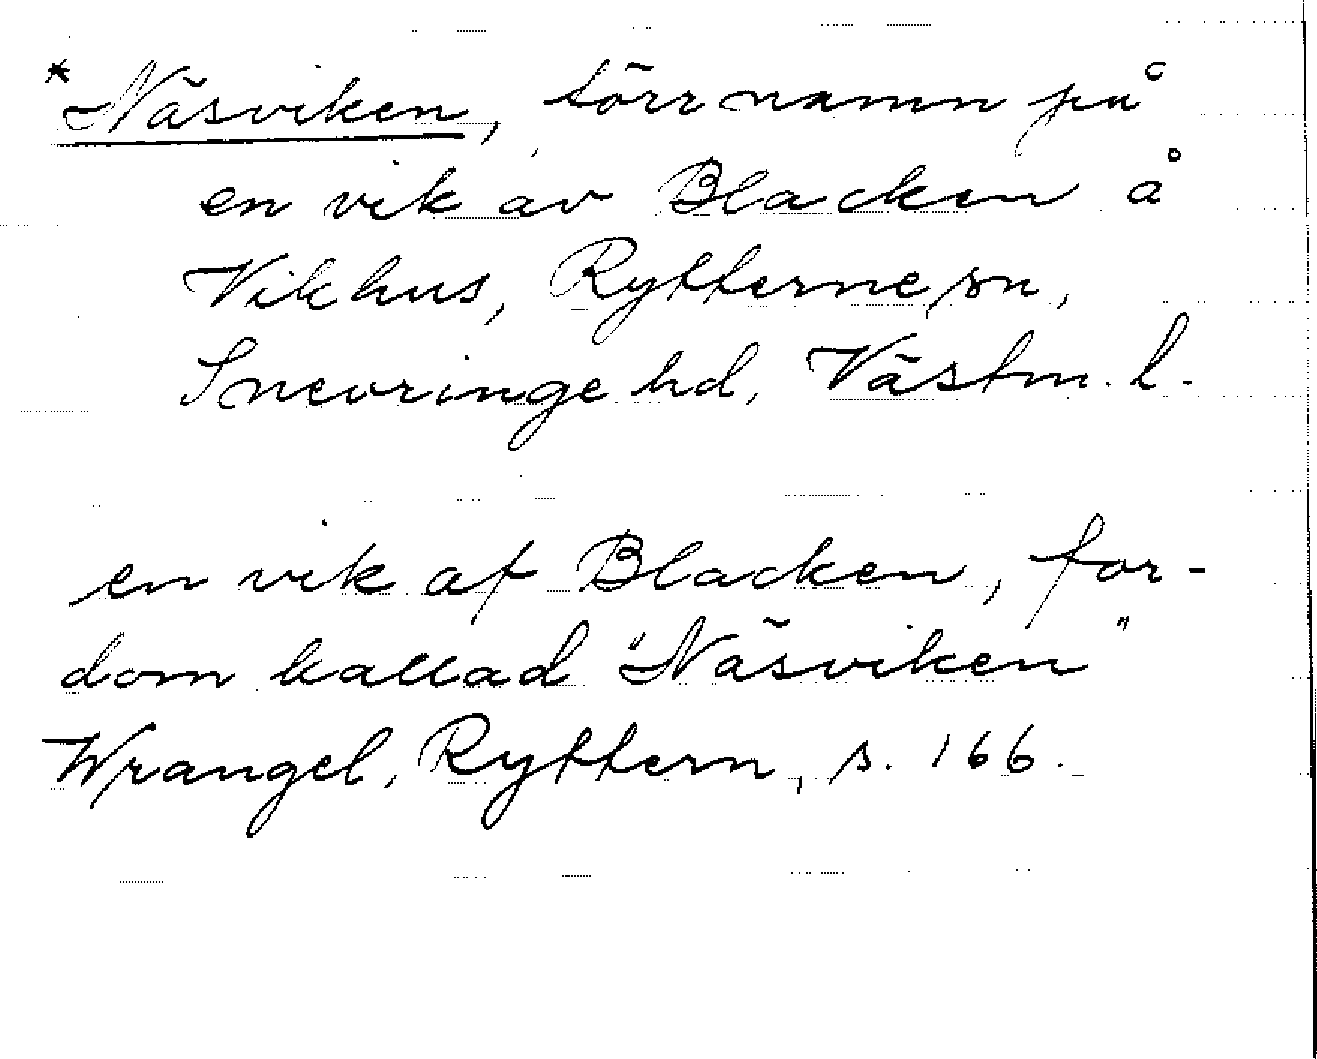 *Näsviken, förr namn på
en vik av Blacken å
Vikhus, Rytterne sn,
Snevringe hd, Västm. l.
en vik af Blacken, for-
dom kallad "Näsviken"
Wrangel, Ryttern, s. 166.